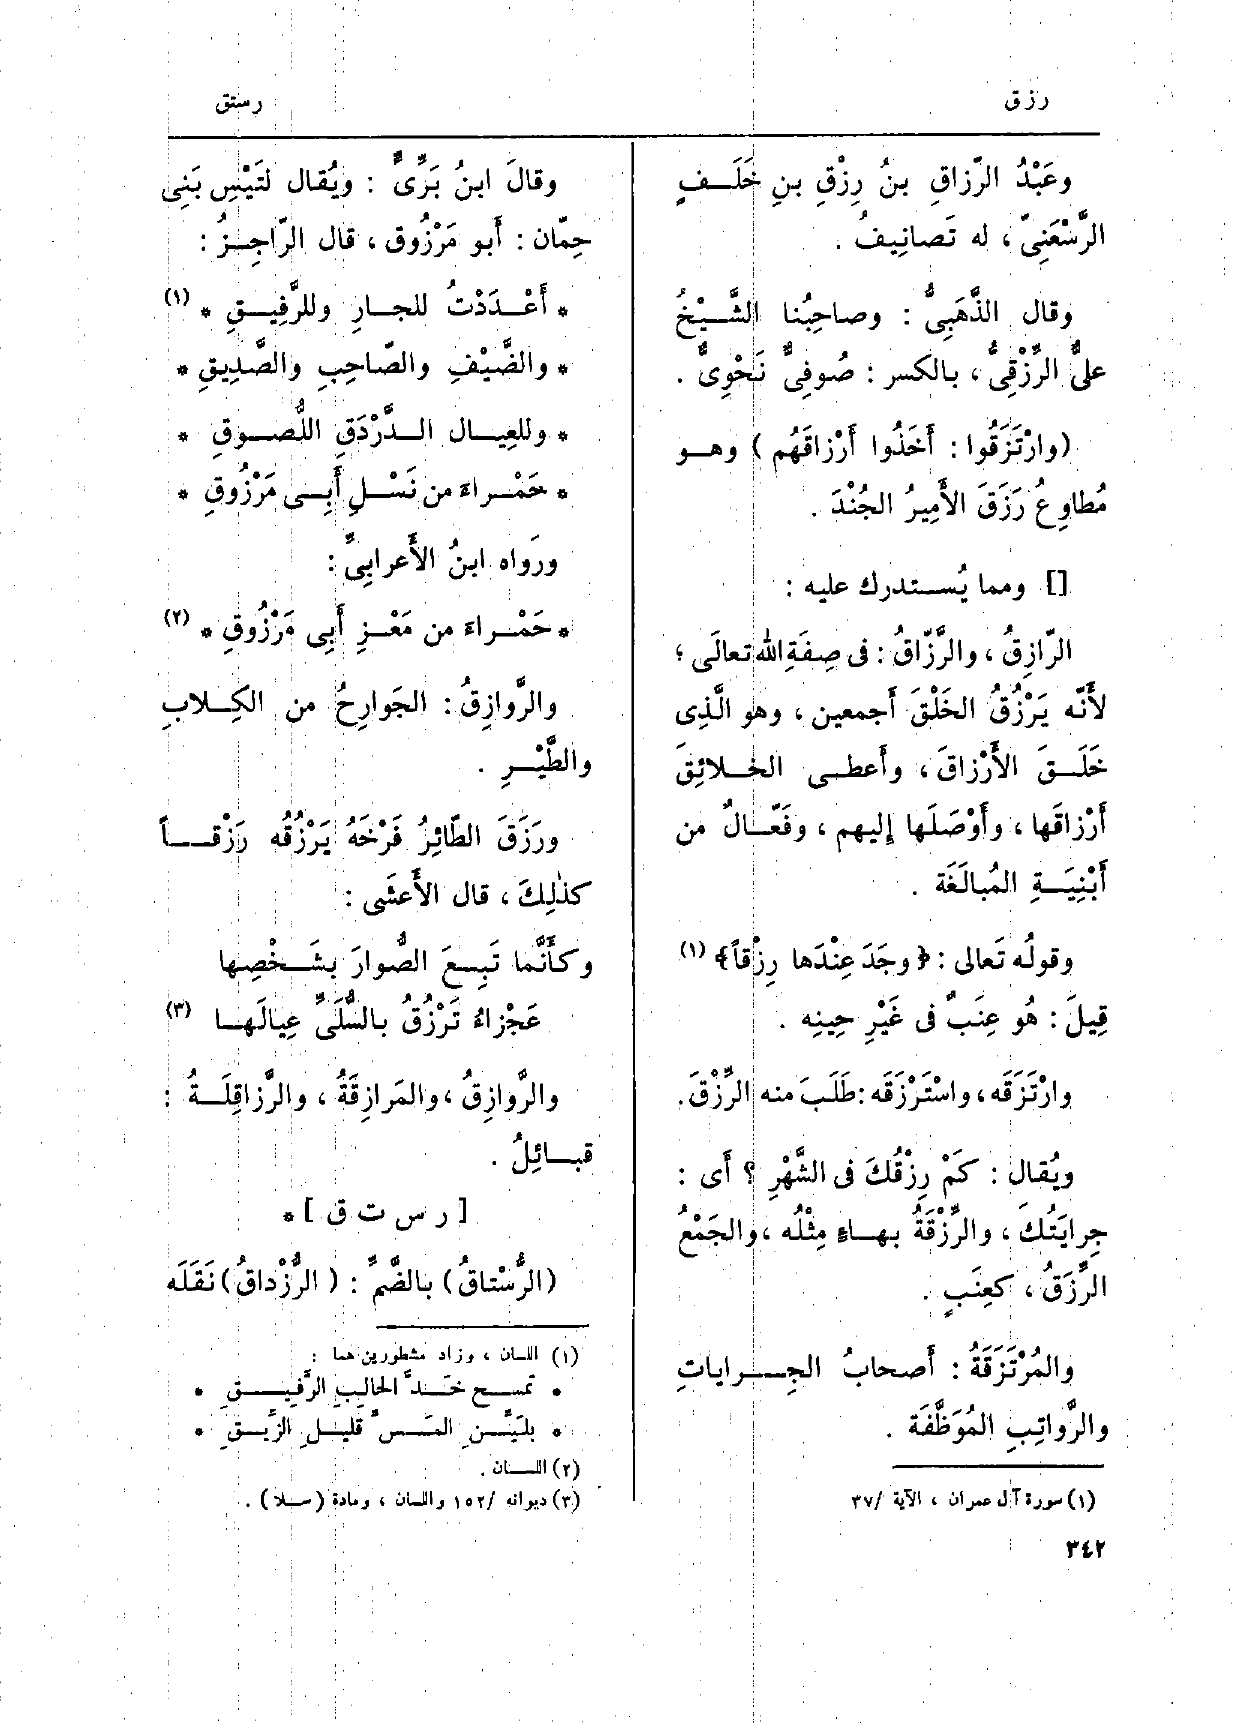 رزق
رستق
وعَبْدُ الرّزاقِ بنُ رِزْقِ بنِ خَلَفٍ
الرَّسْعَنِىّ ، له تَصانِيفُ .
وقال الذَّهَبِىُّ : وصاحِبُنا الشَّيْخُ
علىٌّ الرِّزْقِىُّ ، بالكسر : صُوفِىٌّ نَحْوِىٌّ .
(وارْتَزَقُوا : أَخَذُوا أَرْزاقَهُم ) وهو
مُطاوِعُ رَزَقَ الأَمِيرُ الجُنْدَ .
[] ومما يُستدرك عليه :
الرّازِقُ ، والرَّزّاقُ : فى صِفَةِ الله تعالَى ؛
لأَنّه يَرْزُقُ الخَلْقَ أَجمعين ، وهو الَّذِى
خَلَقَ الأَرْزاقَ ، وأَعطى الخلائِقَ
أَرْزاقَها ، وأَوْصَلَها إليهم ، وفَعّالٌ من
أَبْنِيَةِ المُبالَغَة .
وقولُه تَعالى : ﴿ وجَدَ عِنْدَها رِزْقاً﴾ (١)
قِيلَ : هُو عِنَبٌ فى غَيْرِ حِينِه .
وارْتَزَقَه ، واسْتَرْزَقَه : طَلَبَ منه الرِّزْقَ .
ويُقال : كَمْ رِزْقُكَ فى الشَّهْرِ ؟ أَى :
جِرايَتُكَ ، والرِّزْقَةُ بهاءٍ مِثْلُه ، والجَمْعُ
الرِّزَقُ ، كعِنَبٍ .
والمُرْتَزَقَةُ : أَصحابُ الجِراياتِ
والرَّواتِبِ المُوَظَّفَة .
(١) سورة آل عمران ، الآية /٣٧
٣٤٢
وقالَ ابنُ بَرِّىٌّ : ويُقال لتَيْسِ بَنِى
حِمّان : أَبو مَرْزُوق ، قال الرّاجِزُ :
* أَعْدَدْتُ للجارِ وللرَّفِيقِ * (١)
* والضَّيْفِ والصّاحِبِ والصَّدِيقِ *
* وللعِيال الدَّرْدَقِ اللُّصوقِ *
* حَمْراءَ من نَسْلِ أَبِى مَرْزُوقِ *
ورَواه ابنُ الأَعرابِىِّ :
* حَمْراءَ من مَعْزِ أَبِى مَرْزُوقِ * (٢)
والرَّوازِقُ : الجَوارِحُ من الكِلابِ
والطَّيْرِ .
ورَزَقَ الطّائِرُ فَرْخَهُ يَرْزُقُه رَزْقاً
كذٰلِكَ ، قال الأَعشَى :
وكأَنَّما تَبِعَ الصُّوارَ بشَخْصِها
عَجْزاءُ تَرْزُقُ بالسُّلَىِّ عِيالَها (٣)
والرَّوازِقُ ، والمَرازِقَةُ ، والرَّزاقِلَةُ :
قبائِلُ .
[ ر س ت ق ] *
(الرُّسْتاقُ) بالضَّمِّ : ( الرُّزْداقُ) نَقَلَه
(١) اللسان ، وزاد مشطورين هما :
* تمسح خدَّ الحالِبِ الرَّفِيقِ *
* بليَّنِ المَسِّ قليلِ الرَّيقِ *
(٢) اللسان .
(٣) ديوانه /١٥٢ واللسان ، ومادة (سلا) .